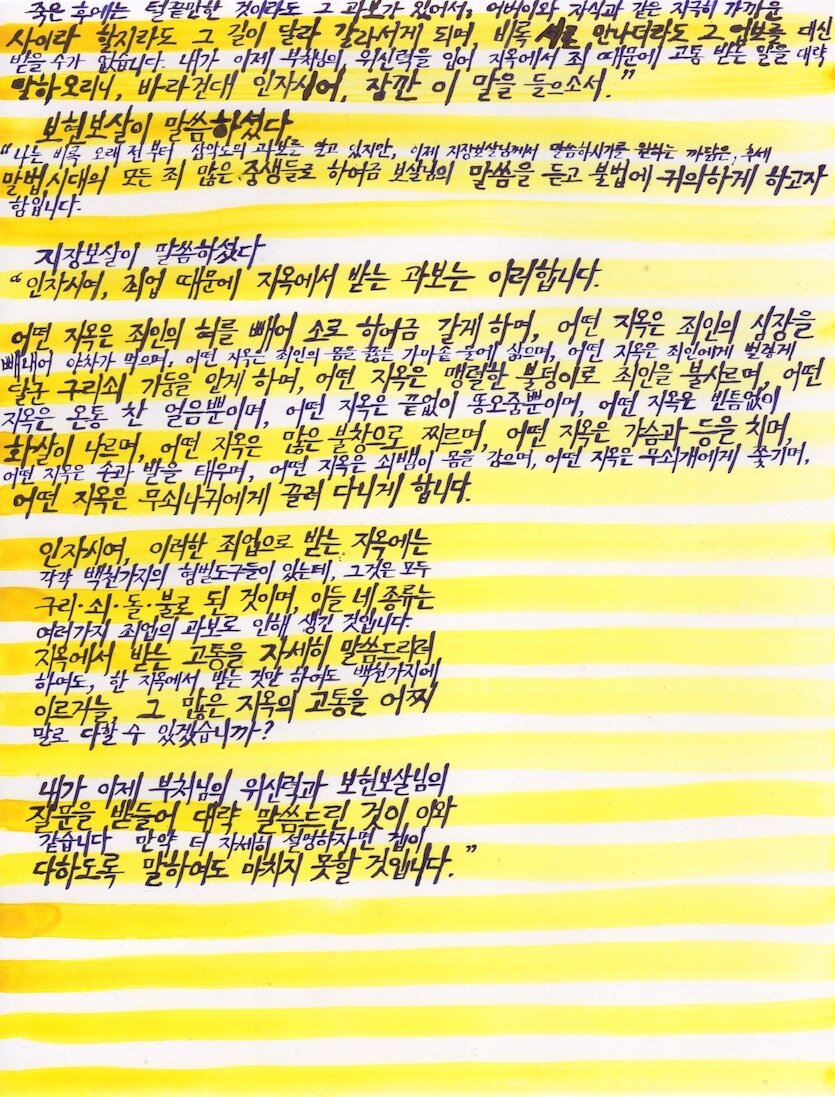 죽은 후에는 털끝만한 것이라도 그 과보가 있어서, 어버이와 자식과 같은 지극히 가까운
사이라 할지라도 그 길이 달라 갈라서게 되며, 비록 서로 만나더라도 그 업보를 대신
받을 수가 없습니다. 내가 이제 부처님의 위신력을 입어 지옥에서 죄 때문에 고통 받는 일을 대략
말하오리니, 바라건대 인자시여, 잠깐 이 말을 들으소서.”
보현보살이 말씀하셨다
“나는 비록 오래 전부터 삼악도의 과보를 알고 있지만, 이제 지장보살님께서 말씀하시기를 원하는 까닭은, 후세
말법시대의 모든 죄 많은 중생들로 하여금 보살님의 말씀을 듣고 불법에 귀의하게 하고자
함입니다.
지장보살이 말씀하셨다
“인자시여, 죄업 때문에 지옥에서 받는 과보는 이러합니다.
어떤 지옥은 죄인의 혀를 빼어 소로 하여금 갈게 하며, 어떤 지옥은 죄인의 심장을
빼내어 야차가 먹으며, 어떤 지옥은 죄인의 몸을 끓는 가마솥 물에 삶으며, 어떤 지옥은 죄인에게 벌겋게
달군 구리쇠 기둥을 안게 하며, 어떤 지옥은 맹렬한 불덩이로 죄인을 불사르며, 어떤
지옥은 온통 찬 얼음뿐이며, 어떤 지옥은 끝없이 똥오줌뿐이며, 어떤 지옥은 빈틈없이
화살이 나르며, 어떤 지옥은 많은 불창으로 찌르며, 어떤 지옥은 가슴과 등을 치며,
어떤 지옥은 손과 발을 태우며, 어떤 지옥은 쇠뱀이 몸을 감으며, 어떤 지옥은 무쇠개에게 쫓기며,
어떤 지옥은 무쇠나귀에게 끌려 다니게 합니다.
인자시여, 이러한 죄업으로 받는 지옥에는
각각 백천가지의 형벌도구들이 있는데, 그것은 모두
구리·쇠·돌·불로 된 것이며, 이들 네 종류는
여러가지 죄업의 과보로 인해 생긴 것입니다.
지옥에서 받는 고통을 자세히 말씀드리려
하여도, 한 지옥에서 받는 것만 하여도 백천가지에
이르거늘, 그 많은 지옥의 고통을 어찌
말로 다할 수 있겠습니까?
내가 이제 부처님의 위신력과 보현보살님의
질문을 받들어 대략 말씀드린 것이 이와
같습니다 만약 더 자세히 설명하자면 겁이
다하도록 말하여도 마치지 못할 것입니다.”